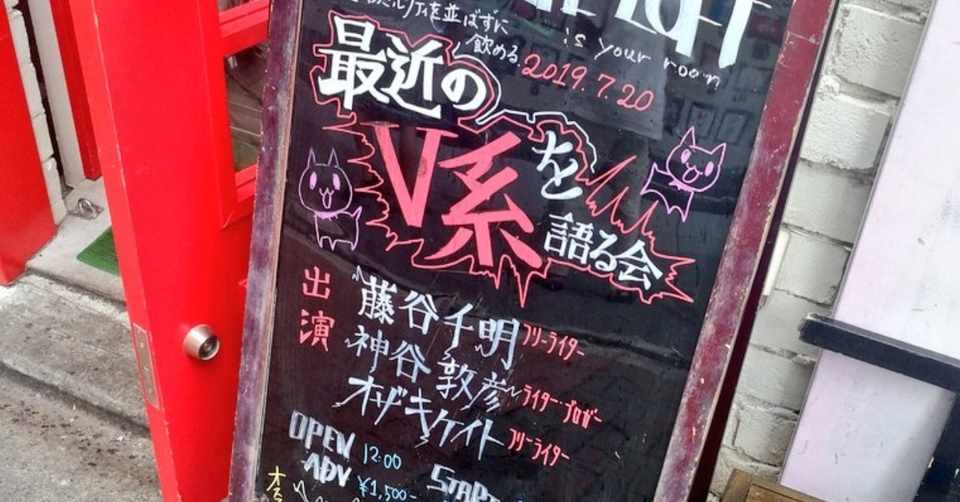 LOFT
ルティを並ばずに
飲める
is your room
2019.7.20
最近の
V系を
語る会
出演
藤谷千明 フリーライター
神谷敦彦 ライター・ブロガー
オザキケイト フリーライター
OPEN 12:00
ADV ¥1,500-